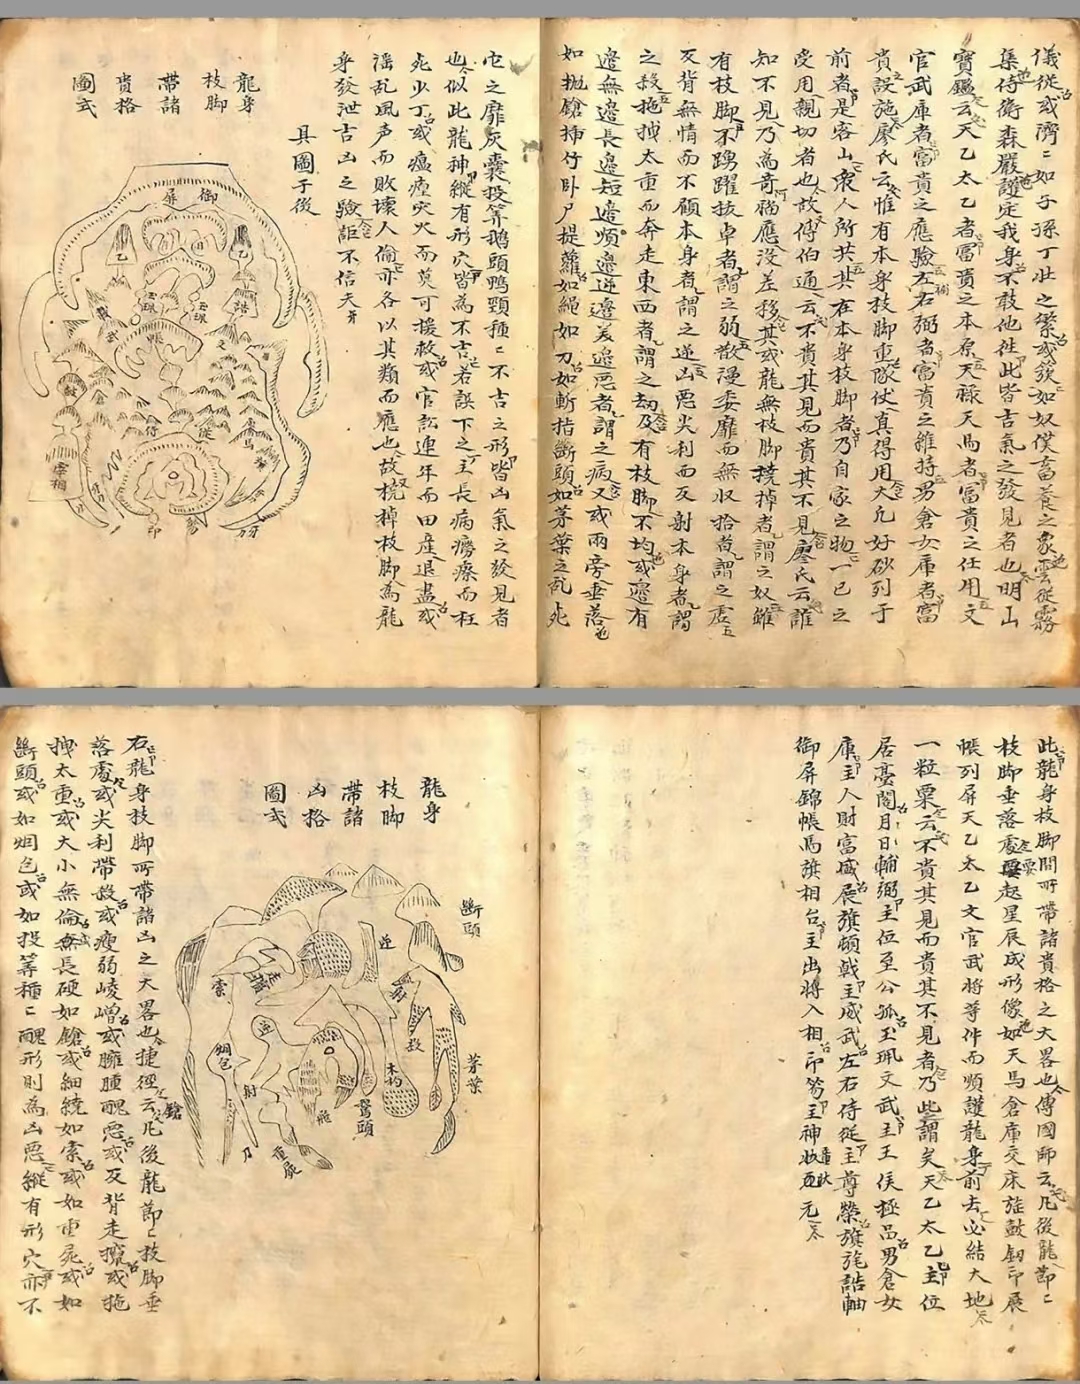 儀從或濟〻如子孫丁壯之繁或簇〻如奴僕畜養之象雲從霧
集侍衛森嚴護定我身不敢他徃此皆吉氣之發見者也明山
寶鑑云天乙太乙者富貴之本泉天祿天馬者富貴之任用文
官武庫者富貴之應驗左右弼者富貴之維持男倉女庫者富
貴設施廖氏云惟有本身枝脚重隊仗真得用大凡好砂列于
前者是客山衆人所共共在本身枝脚者乃自家之物一己之
受用親切者也故傅伯通云不貴其見而貴其不見廖氏云誰
知不見乃為奇福應沒差移其或龍無枝脚撓掉者謂之奴雖
有枝脚不踴躍拔卓者謂之弱散漫委靡而無收拾者謂之虛
反背無情而不顧本身者謂之逆凶惡尖利而反射本身者謂
之殺拖拽太重而奔走東西者謂之劫及有枝脚不均或邊有
邊無邊長邊短邊順邊逆邊美邊惡者謂之病又或兩旁垂落
如拋鎗揷竹卧尸提蘿如繩如刀如斬指斷頭如茅葉之乱死
屯之靡灰囊投筭鵝頭鴨頸種〻不吉之形皆凶氣之發見者
也似此龍神縱有形穴皆為不吉若誤下之主長病癆瘵而枉
死少丁或瘟瘽灾火而莫可援救或官訟連年而田産退盡或
滛乱風声而敗壞人倫亦各以其類而應也故梳掉枝脚為龍
身發泄吉凶之驗詎不信夫
具圖于後
龍身
枝脚
帶諸
貴格
圖式
御屏
乙
乙
誥
文
武
帳
倉
庫
馬
侍
從
宰相
印
笏
此龍身枝脚間所帶諸貴格之大畧也傳國師云凡後龍節〻
枝脚垂落處要起星辰成形像如天馬倉庫交床旌鼓劒印展
帳列屏天乙太乙文官武將等件而順護龍身前去必結大地
一粒粟云不貴其見而貴其不見者乃此謂矣天乙太乙主位
居臺閣月日輔弼主位至公孤玉珮文武主王侯極品男倉女
庫主人財富盛展旗頓戟主威武左右侍從主尊榮旗旄誥軸
御屏錦帳馬旗相台主出將入相印笏主神
龍身
枝脚
帶諸
凶格
圖式
斷頭
逆
茅葉
殺
木杓
鵞頭
索
逆
烟包
射
刀
重屍
右龍身枝脚所帶諸凶之大畧也捷徑云凡後龍節〻枝脚垂
落處或尖利帶殺或瘦弱崚嶒或臃腫醜惡或反背走攛或拖
拽太重或大小無倫無長硬如鎗或細繞如索或如重屍或如
斷頭或如烟包或如投筭種〻醜形則為凶惡縱有形穴亦不